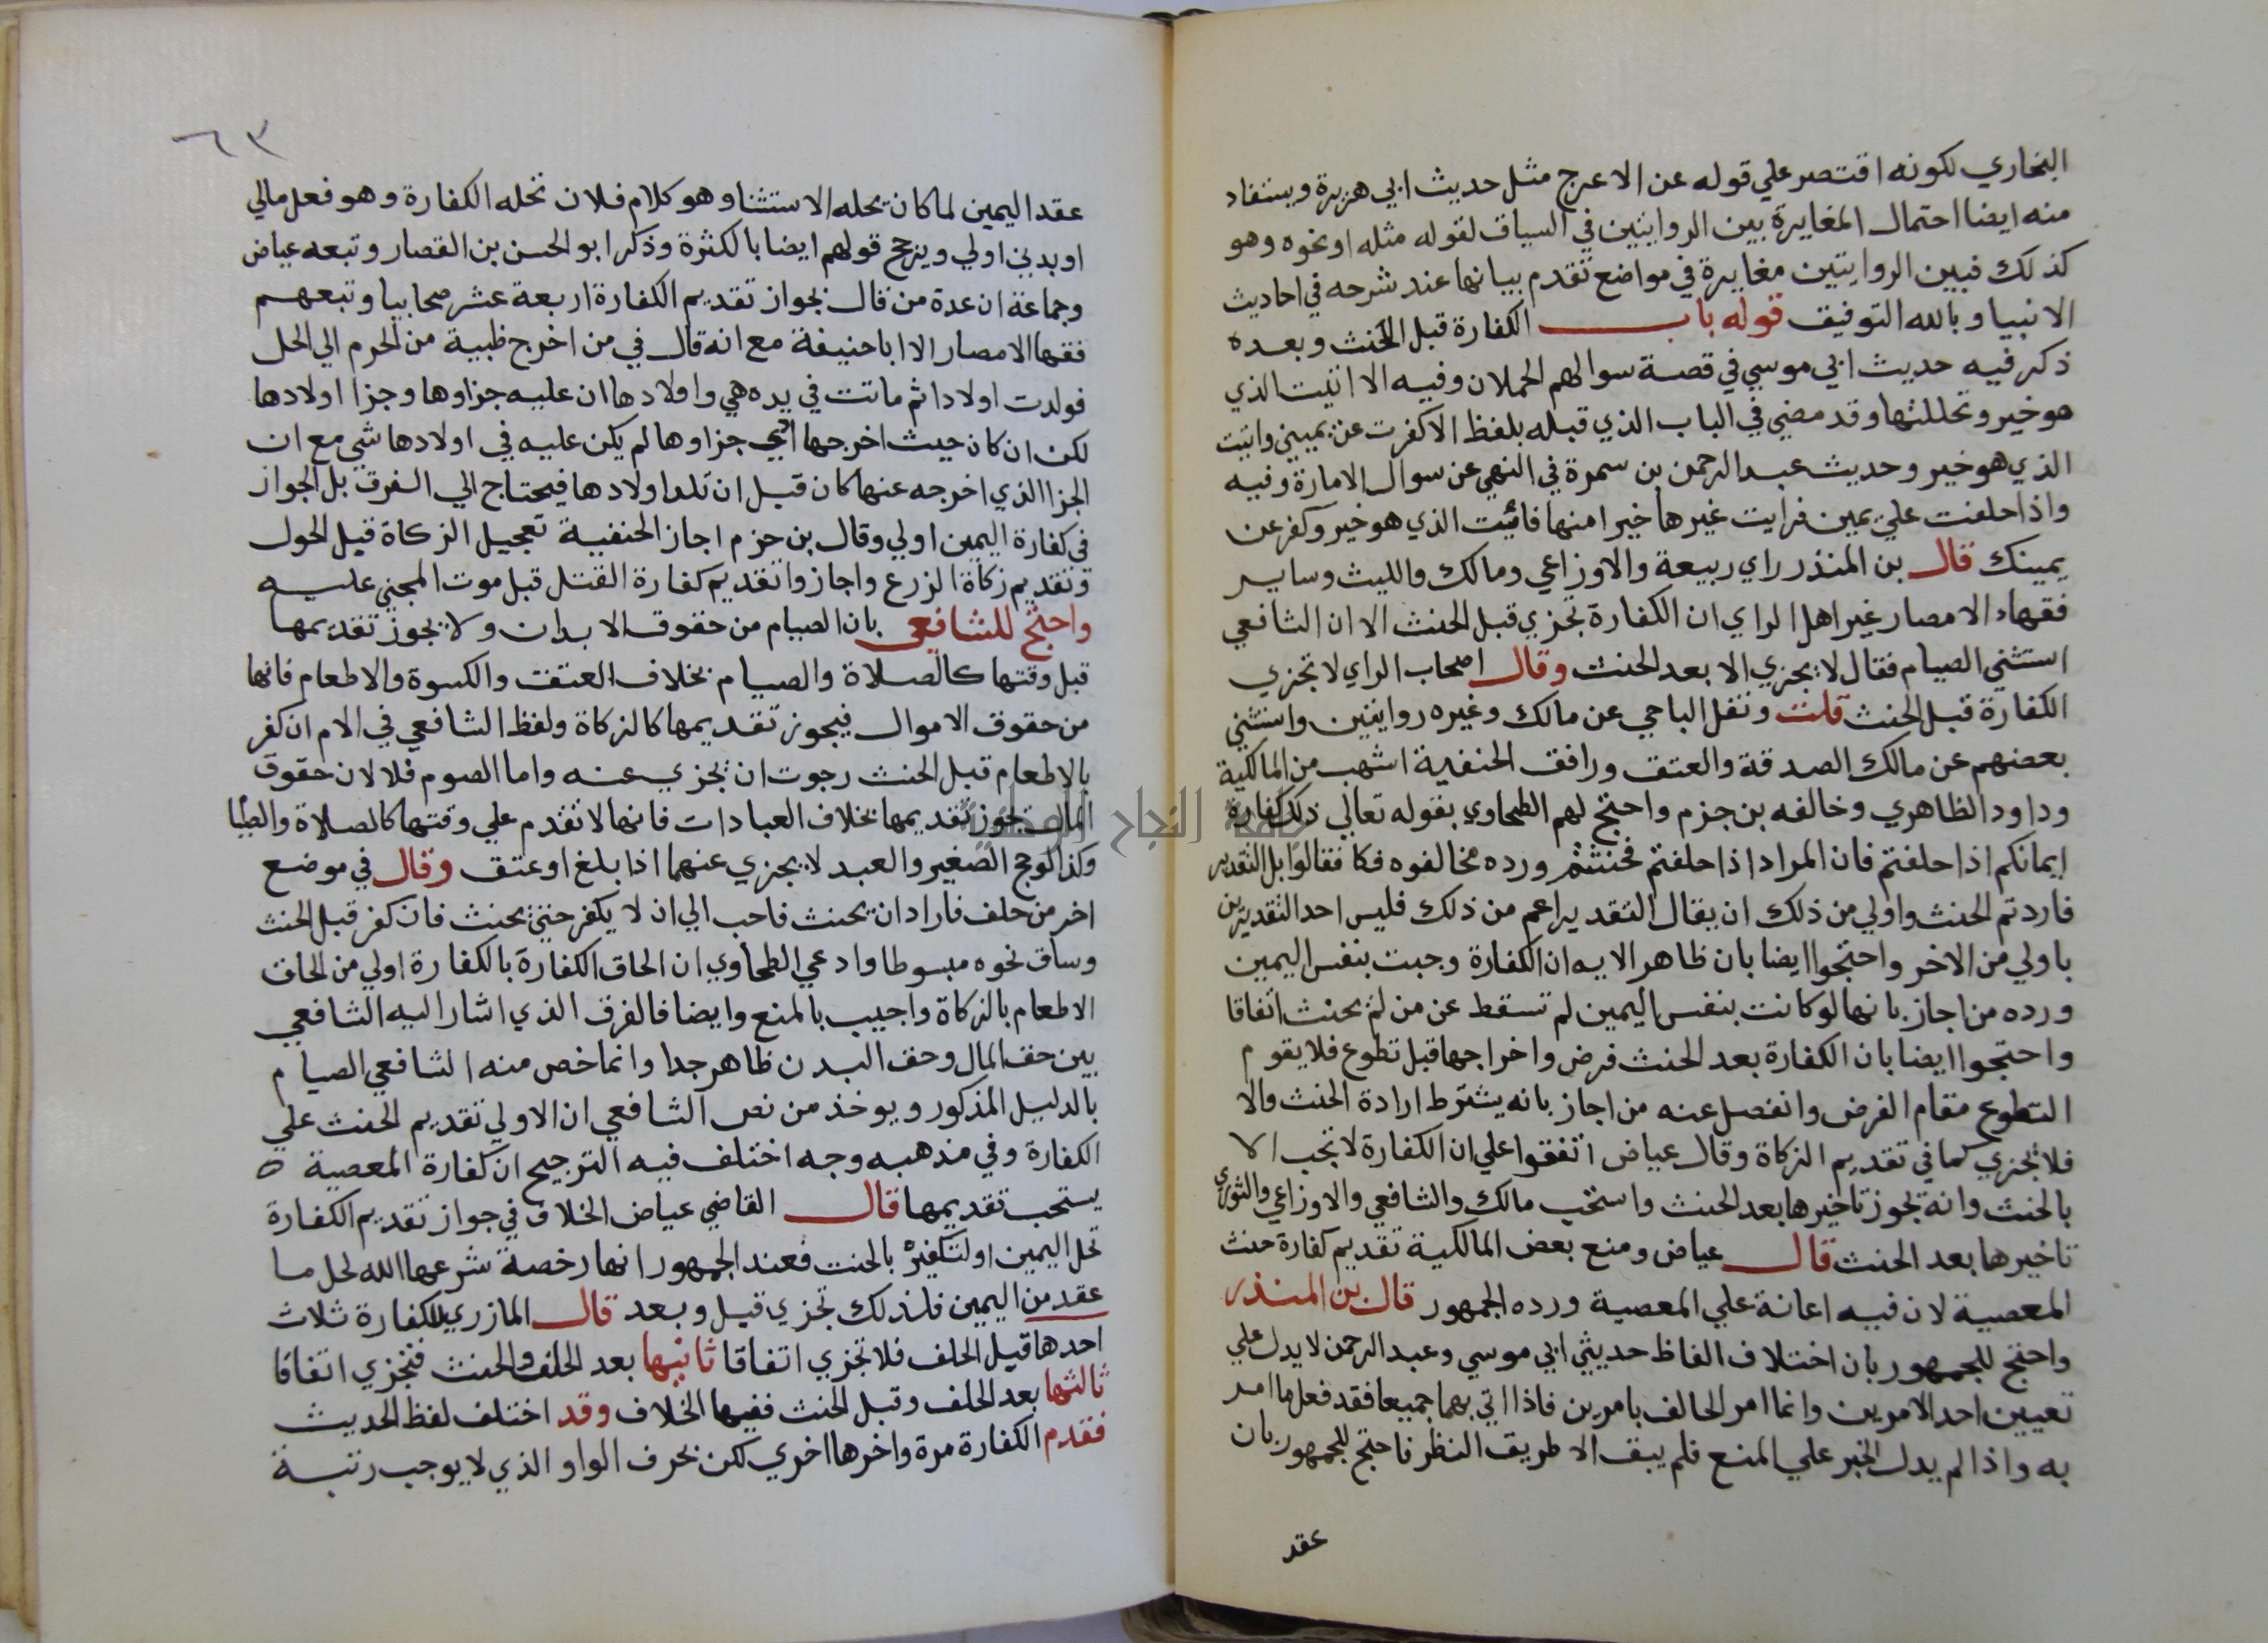 البخاري لكونه اقتصر علي قوله عن الاعرج مثل حديث ابي هريرة ويستفاد
منه ايضا احتمال المغايرة بين الروايتين في السياق لقوله مثله او نحوه وهو
كذلك فبين الروايتين مغايرة في مواضع تقدم بيانها عند شرحه في احاديث
الانبيا وبالله التوفيق قوله باب الكفارة قبل الحنث وبعده
ذكر فيه حديث ابي موسي في قصة سوالهم الحملان وفيه الا اتيت الذي
هو خير وتحللتها وقد مضي في الباب الذي قبله بلفظ الا كفرت عن يميني واتيت
الذي هو خير وحديث عبد الرحمن بن سمرة في النهي عن سوال الامارة وفيه
واذا حلفت علي يمين فرايت غيرها خيرا منها فائت الذي هو خير وكفر عن
يمينك قال بن المنذر راي ربيعة والاوزاعي ومالك والليث وساير
فقهاء الامصار غير اهل الراي ان الكفارة تجزي قبل الحنث الا ان الشافعي
استثني الصيام فقال لا يجزي الا بعد الحنث وقال اصحاب الراي لا تجزي
الكفارة قبل الحنث قلت ونقل الباجي عن مالك وغيره روايتين واستثني
بعضهم عن مالك الصدقة والعتق ورافق الحنفية اشهب من المالكية
وداود الظاهري وخالفه بن حزم واحتج لهم الطحاوي بقوله تعالي ذلك كفارة
ايمانكم اذا حلفتم فان المراد اذا حلفتم فحنثتم ورده مخالفوه فكا فقالوا بل التقدير
فاردتم الحنث واولي من ذلك ان يقال التقدير اعم من ذلك فليس احد التقديرين
باولي من الاخر واحتجوا ايضا بان ظاهر الايه ان الكفارة وجبت بنفس اليمين
ورده من اجاز بانها لو كانت بنفس اليمين لم تسقط عن من لم يحنث اتفاقا
واحتجوا ايضا بان الكفارة بعد الحنث فرض واخراجها قبل تطوع فلا يقوم
التطوع مقام الفرض وانفصل عنه من اجاز بانه يشترط ارادة الحنث والا
فلا تجزي كما في تقديم الزكاة وقال عياض اتفقوا علي ان الكفارة لا تجب الا
بالحنث وانه يجوز تاخيرها بعد الحنث واستحب مالك والشافعي والاوزاعي والثوري
تاخيرها بعد الحنث قال عياض ومنع بعض المالكية تقديم كفارة حنث
المعصية لان فيه اعانة علي المعصية ورده الجمهور قال بن المنذر
واحتج للجمهور بان اختلاف الفاظ حديثي ابي موسي وعبد الرحمن لا يدل علي
تعيين احد الامرين وانما امر الحالف بامرين فاذا اتي بهما جميعا فقد فعل ما امر
به واذا لم يدل الخبر علي المنع فلم يبق الا طريق النظر فاحتج للجمهور بان
عقد
٦٣
عقد اليمين لما كان يحله الاستثنا وهو كلام فلان تحله الكفارة وهو فعل مالي
او بدني اولي ويرجح قولهم ايضا بالكثرة وذكر ابو الحسن بن القصار وتبعه عياض
وجماعة ان عدة من قال بجواز تقديم الكفارة اربعة عشر صحابيا وتبعهم
فقها الامصار الا ابا حنيفة مع انه قال في من اخرج ظبية من الحرم الي الحل
فولدت اولادا ثم ماتت في يده هي واولادها ان عليه جزاوها وجزا اولادها
لكن ان كان حيث اخرجها ادي جزاوها لم يكن عليه في اولادها شي مع ان
الجزا الذي اخرجه عنها كان قبل ان تلد اولادها فيحتاج الي الفرق بل الجواز
في كفارة اليمين اولي وقال بن حزم اجاز الحنفية تعجيل الزكاة قبل الحول
وتقديم زكاة الزرع واجازوا تقديم كفارة القتل قبل موت المجني عليه
واحتج للشافعي بان الصيام من حقوق الابدان ولا يجوز تقديمها
قبل وقتها كالصلاة والصيام بخلاف العتق والكسوة والاطعام فانها
من حقوق الاموال فيجوز تقديمها كالزكاة ولفظ الشافعي في الام ان كفر
بالاطعام قبل الحنث رجوت ان يجزي عنه واما الصوم فلا لان حقوق
المال يجوز تقديمها بخلاف العبادات فانها لا تقدم علي وقتها كالصلاة والصيا
وكذا لو حج الصغير والعبد لا يجزي عنهما اذا بلغ او عتق وقال في موضع
اخر من حلف فاراد ان يحنث فاحب الي ان لا يكفر حتي يحنث فان كفر قبل الحنث
وساق نحوه مبسوطا وادعي الطحاوي ان الحاق الكفارة بالكفارة اولي من الحاق
الاطعام بالزكاة واجيب بالمنع وايضا فالفرق الذي اشار اليه الشافعي
بين حق المال وحق البدن ظاهر جدا وانما خص منه الشافعي الصيام
بالدليل المذكور ويوخذ من نص الشافعي ان الاولي تقديم الحنث علي
الكفارة وفي مذهبه وجه اختلف فيه الترجيح ان كفارة المعصية
يستحب تقديمها قال القاضي عياض الخلاف في جواز تقديم الكفارة
تحل اليمين او لتكفير بالحنث فعند الجمهور انها رخصة شرعها الله لحل ما
عقد من اليمين فلذلك تجزي قبل وبعد قال المازري للكفارة ثلاث
احدها قبل الحلف فلا تجزي اتفاقا ثانيها بعد الحلف والحنث فتجزي اتفاقا
ثالثها بعد الحلف وقبل الحنث ففيها الخلاف وقد اختلف لفظ الحديث
فقدم الكفارة مرة واخرها اخري لكن بحرف الواو الذي لا يوجب رتبة
جامعة النجاح الوطنية